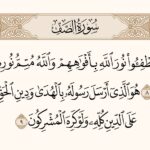 سُورَةُ الصَّفِّ
طْفِـُٔوا۟ نُورَ ٱللَّهِ بِأَفْوَٰهِهِمْ وَٱللَّهُ مُتِمُّ نُورِ
٨ هُوَ ٱلَّذِىٓ أَرْسَلَ رَسُولَهُۥ بِٱلْهُدَىٰ وَدِينِ ٱلْحَقِّ
عَلَى ٱلدِّينِ كُلِّهِۦ وَلَوْ كَرِهَ ٱلْمُشْرِكُونَ ٩